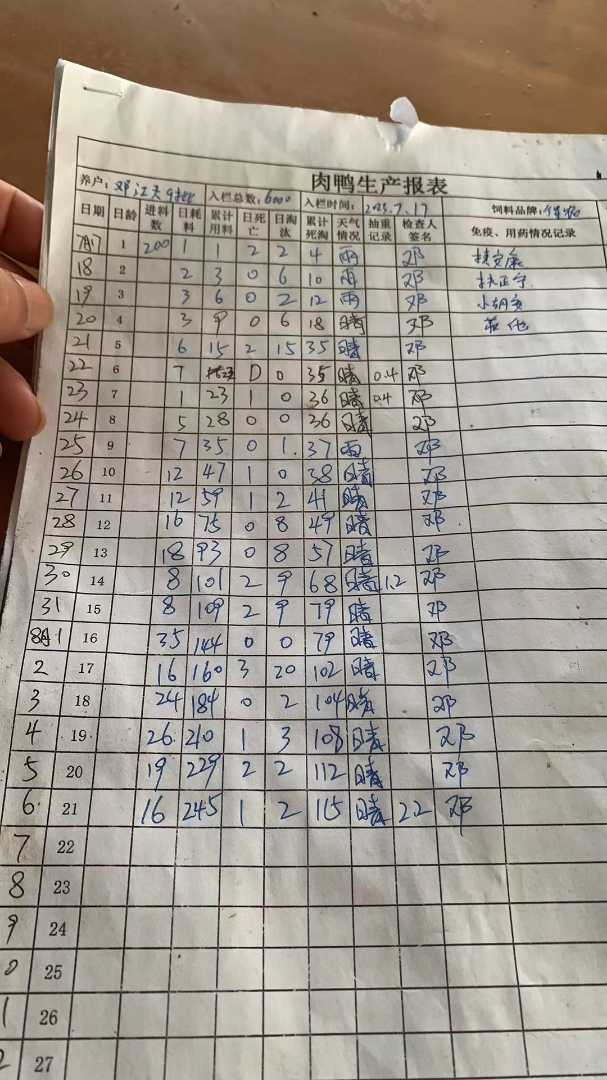 肉鸭生产报表
养户: 邓江夫9批 入栏总数: 6000 入栏时间: 2025.7.17 饲料品牌:
日期 日龄 进料数 日耗料 累计用料 日死亡 日淘汰 累计死淘 天气情况 抽重记录 检查人签名 免疫、用药情况记录
7月17 1 200 1 1 2 2 4 雨 邓
18 2 2 3 0 6 10 雨 邓
19 3 3 6 0 2 12 雨 邓
20 4 3 9 0 6 18 晴 邓
21 5 6 15 2 15 35 晴 邓
22 6 7 0 0 35 晴 0.4 邓
23 7 1 23 1 0 36 晴 0.4 邓
24 8 5 28 0 0 36 晴 邓
25 9 7 35 0 1 37 雨 邓
26 10 12 47 1 0 38 晴 邓
27 11 12 59 1 2 41 晴 邓
28 12 16 75 0 8 49 晴 邓
29 13 18 93 0 8 57 晴 邓
30 14 8 101 2 9 68 晴 12 邓
31 15 8 109 2 9 79 晴 邓
8月1 16 35 144 0 0 79 晴 邓
2 17 16 160 3 20 102 晴 邓
3 18 24 184 0 2 104 晴 邓
4 19 26 210 1 3 108 晴 邓
5 20 19 229 2 2 112 晴 邓
6 21 16 245 1 2 115 晴 22 邓
7 22
8 23
9 24
0 25
1 26
2 27